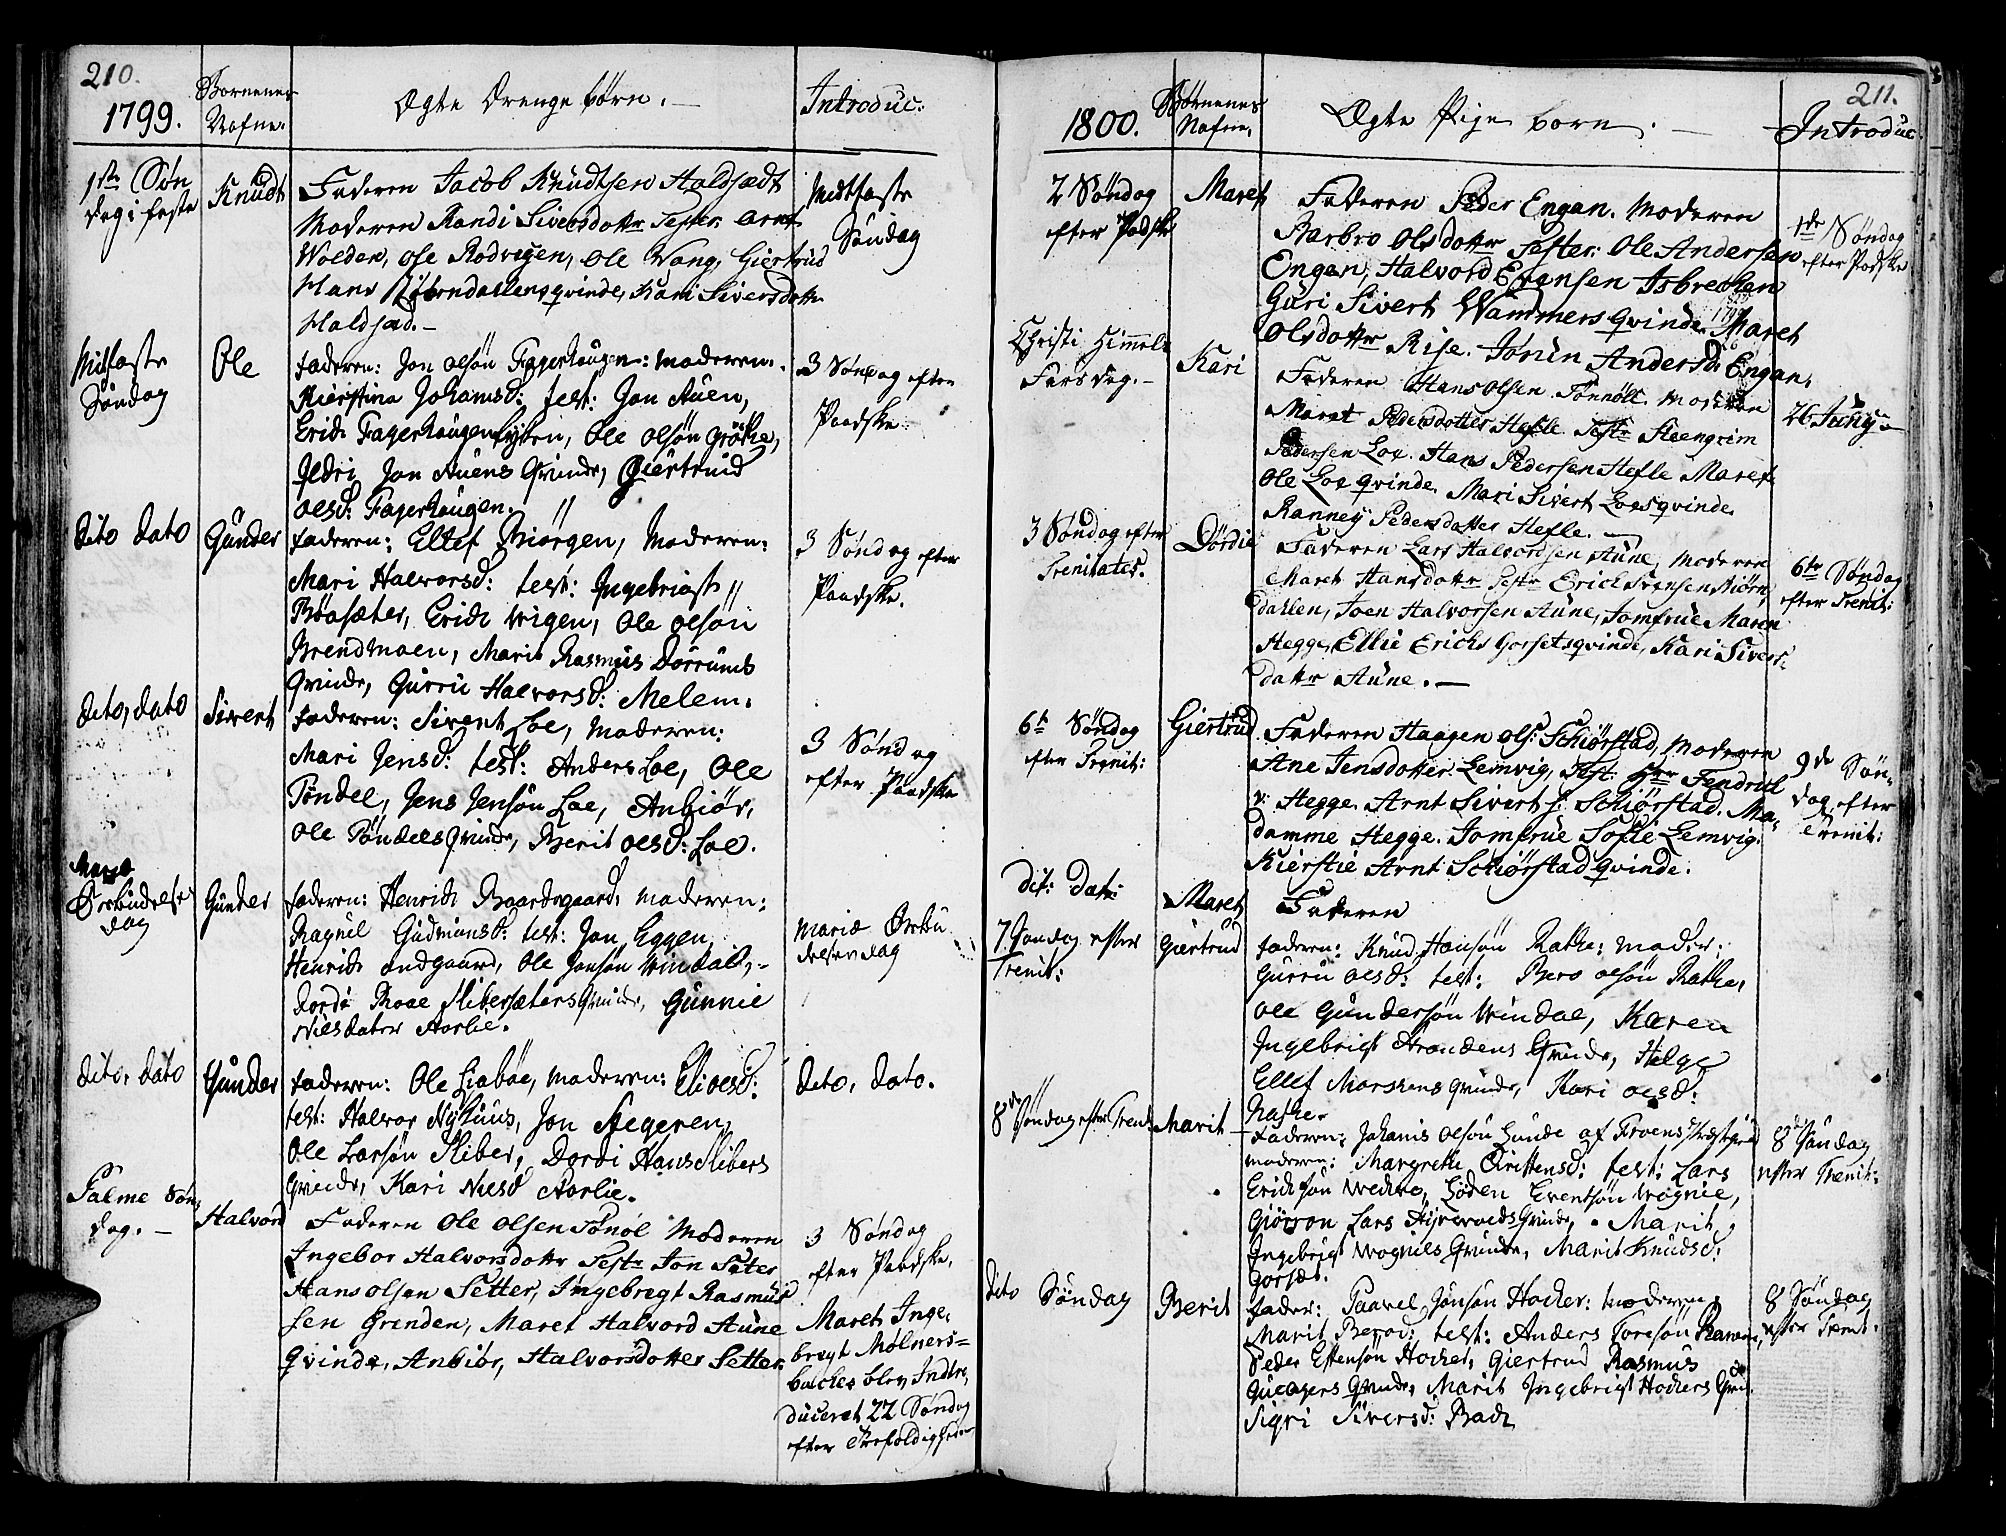 210.
1799.
Børnenes
Nafne.
Ægte Drenge børn. —
Introduc:
1ste Søn
dag i faste
Knudt
Faderen Jacob Knudtsen Haldsædt
Moderen Randi Siversdottr Tester Arnt
Wolden, Ole Rodvegen, Ole Vang, Giertrud
Hans Qvinde, Kari Siversdottr
Haldsæd. —
Midtfaste
Søndag
Midfaste
Søndag
Ole
Faderen: Jon Olsøn Fagerhaugen: Moderen:
Kierstina Johansd: test: Jon Auen,
Erich Fagerhaugen, Ole Olsøn Grøthe,
Jldri Jon Auens Qvinde, Giertrud
Olsd: Fagerhaugen.
3 Søndag efter
Paaske.
dito dato
Gunder
Faderen: Ellef Biørgen, Moderen:
Mari Halvorsd: test: Ingebrigt
Bøasæter, Erich Wigen, Ole Olsøn
Brendmoen, Marit Rasmus Dørrums
Qvinde, Gurru Halvorsd: Melem.
3 Søndag efter
Paaske.
dito, dato
Sivert
Faderen: Sivert Loe, Moderen:
Mari Jensd: test: Anders Loe, Ole
Tøndel, Jens Jensøn Loe, Anbiør,
Ole Tøndels Qvinde, Berit Olsd: Loe.
3 Søndag
efter Paaske
Mariæ
dag
Gunder
Faderen: Henrich Baardsgaard, Moderen:
Ragnil Gudmunsd: test: Jon Eggen
Henrich Andgaard, Ole Jonsøn Windal,
Dordi Roae Slibersæters Qvinde, Gunnie
Nilsdater Aarlie.
Mariæ
dag
dito, dato
Gunder
Faderen: Ole Liabøe, Moderen: Eli Olsd:
test: Halvor Nyhuus, Jon Stegeren,
Ole Larsøn Sliber, Dordi Hans Slibers
Qvinde, Kari Nilsd Aarlie.
dito, dato.
Palme Søn
dag. —
Halvord
Faderen Ole Olsen Tønøl Moderen
Ingebor Halvorsdottr Testr Jon Sæter
Hans Olsen Setter, Ingebregt Rasmus
sen Grinden, Maret Halvord Aune
Qvinde, Anbiør, Halvorsdotter Setter
3 Søndag
efter Paaske,
Maret Inge,
bregt Mølners=
backes blev Intro,
duceret 22 Søndag
efter Trefoldighed
211.
1800.
Børnenes
Nafne.
Ægte Pige born. —
Introduc
2 Søndag
efter Paaske
Maret
Faderen Peder Engan. Moderen
Barbro Olsdottr Tester: Ole Andersen
Engan, Halvord Evensen Isbrecken
Guri Sivert Wammers qvinde Maret
Olsdottr Rise. Jørun Andersd: Engan.
1de Søndag
efter Paaske
Christi Himmel
Farsdag. —
Kari
Faderen Hans Olsen Tønnöll. Moderen
Maret Pedersdotter Hefle Testr Steengrim
Pedersen Loe. Hans Pedersen Hefle Maret
Ole Loe qvinde. Mari Sivert Loes qvinde
Ranney Pedersdotter Hefle. —
26 Juny
3 Søndag efter
Trenitates.
Dordie
Faderen Lars Halvordsen Aune, Moderen
Maret Hansdottr Testr Erick Biørn
dahlen, Joen Halvorsen Aune, Jomfrue Maren
Hegge, Ellie Ericks Gorsets qvinde, Kari Sivers
dottr Aune. —
6te Søndag
efter Trenit:
6te Søndag
efter Trenit:
Giertrud
Faderen Haagen Ols: Schiørstad, Moderen
Ane Jensdotter Lemvig, Test: Hrr Fendrich
v: Hegge. Arnt Sivert s: Schiørstad. Ma=
damme Hegge. Jomfrue Sofie Lemvig.
Kierstie Arnt Schiørstad qvinde.
9de Søn=
dag efter
Trenit:
dit: Dat:
Maret
Faderen
7. Søndag efter
Trenit:
Giertrud
Faderen: Knud Hansøn Rathe: Moder:
Gurru Olsd: test: Bero Olsøn Rathe,
Ole Gundersøn Windal, Karen
Ingebrigt Strandens Qvinde, Helge
Ellef Marskens Qvinde, Kari Olsd:
Rathe
8de Søndag efter Trenit
Marit
Faderen: Johanis Olsøn Lunde af
Moderen: Margrethe Christensd: test: Lars
Erichsøn Wedwe, Eventsøn Wognil,
Lars Qvinde, Marit,
Ingebrigt Wognils Qvinde, Marit Knudsd:
Gorsæt.
8de Søndag
efter Trenit:
dito Søndag
Berit
Fader: Paavel Jonsøn Hocker: Moderen:
Marit Berod: test: Anders Toresøn
Peder Estensøn Hocker, Giertrud Rasmus
Qvinde, Marit Ingebrigt Hockers Qvin.
Sigri Siversd: Bach
8 Søndag
efter Trenit.